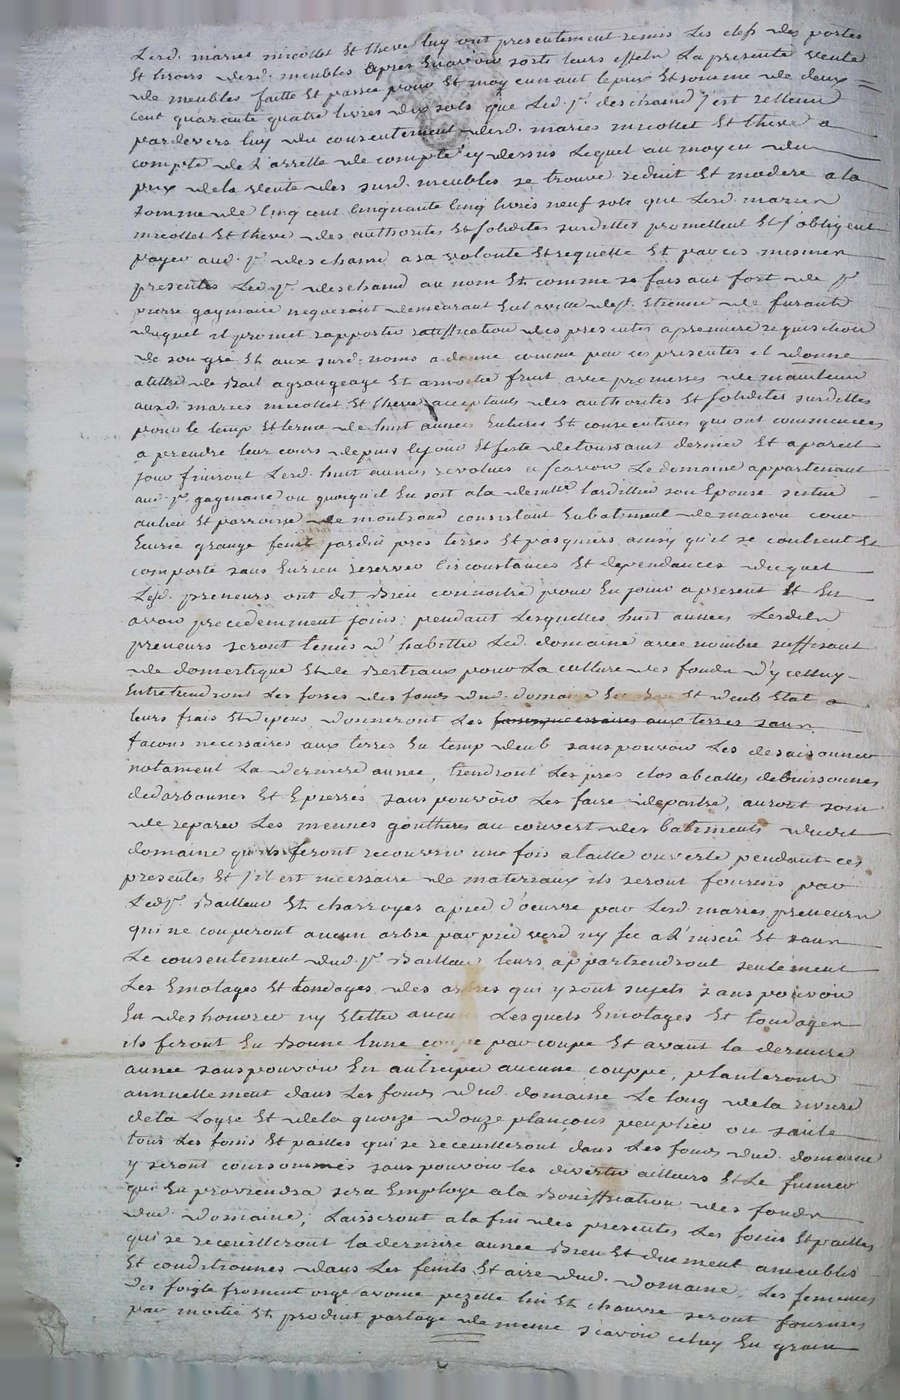 Lesd. maries micollet Et theve luy ont presentement remis Les clefs des portes
Et tiroirs desd. meubles apres En avoir sorti leurs effets La presente vente
de meubles faitte Et passée pour Et moyennant le prix Et somme de deux
cent quarante quatre livres dix sols que Led. Sr. deschamd s'est retteni
pardevers luy du consentement desd. maries micollet Et theve a
compte de L'arrette de compte cy dessus Lequel au moyen du
prix dela vente des surd. meubles se trouve reduit Et modere a la
somme de Cinq cent Cinquante Cinq livres neuf sols que Lesd. maries
micollet Et theve des authorités Et soliditès surdittes promettent Et s'obligent
payer aud. Sr. deschamd a sa volonté Et requette Et par ces mesmes
presentes Led. Sr. deschamd au nom Et comme se faisant fort de Sr
pierre gagniaire negotiant demeurant En la ville de St. Etienne de furand
duquel il promet rapporter ratiffication des presentes a premiere requisition
de son gré Et aux surd. noms a donné comme par ces presentes il donne
a titre de Bail a grangeage Et a moitié fruit avec promesses de maintenir
auxd. maries micollet Et theve acceptants des authorités Et soliditès surdittes
pour le temp Et terme de huit années Entieres Et consecutives qui ont commencées
a prendre leur cours depuis le jour Et feste de toussaint dernier Et a pareil
jour finiront Lesd. huit années revolues Le domaine appartenant
aud. Sr. gagniaire ou quoiqu'il En soit a la delle lardillier son Epouse scitué
au lieu Et parroisse de montrond consistant En batiment de maison cour
Ecurie grange fenil jardin prés terres Et pasquiers ainsy qu'il se contient Et
comporte sans En rien reserver circonstances Et dependances duquel
Lesd. preneurs ont dit Bien connoitre pour En jouir a present Et En
avoir precedemment joui; pendant Lesquelles huit années Lesdits
preneurs seront tenus d'habitter Led. domaine avec nombre suffisant
de domestique Et de Bestiaux pour La culture des fonds d'ycelluy
Entretiendront Les fosses des fonds dud. domaine En bon Et deub Etat a
leurs frais Et depens, donneront Les façons necessaires aux terres sans
façons necessaires aux terres En temp deub sans pouvoir Les desaisonner
notament La derniere année, tiendront Les prés clos abcattés debuissonnés
dedarbonnés Et Epierrés sans pouvoir Les faire depaitre, auront soin
de reparer Les mennes gouttieres au couvert des batiments dudit
domaine qu'ils feront recouvrir une fois a taille ouverte pendant ces
presentes Et s'il est necessaire de materiaux ils seront fournis par
Led. Sr. Bailleur Et charroyés a pied d'oeuvre par Lesd. maries preneurs
qui ne couperont aucun arbre par pied verd ny sec a L'inscû Et sans
Le consentement dud. Sr. Bailleur leurs appartiendront seulement
Les Emotages Et tondages des arbres qui y sont sujets sans pouvoir
En deshonorer ny Etetter aucun Lesquels Emotages Et tondages
ils feront En Bonne lune coupe par coupe Et avant la derniere
année sans pouvoir En anticiper aucune couppe, planteront
annuellement dans Les fonds dud. domaine Le long de la riviere
de la Loyse Et de la quoize douze plançons peuplier ou saule
tous Les foins Et pailles qui se receuilleront dans Les fonds dud. domaine
y seront consommés sans pouvoir les divertir ailleurs Et Le fumier
qui En proviendra sera Employé a la Boniffication des fonds
dud. domaine; Laisseront a la fin des presentes Les foins Et pailles
qui se receuilleront la derniere année Bien Et duement ameublés
Et conditionnés dans Les fenils Et aire dud. domaine, Les semences
des soigle froment orge avoine pezette lin Et chanvre seront fournies
par moitié Et produit partagé de meme scavoir celuy En grain